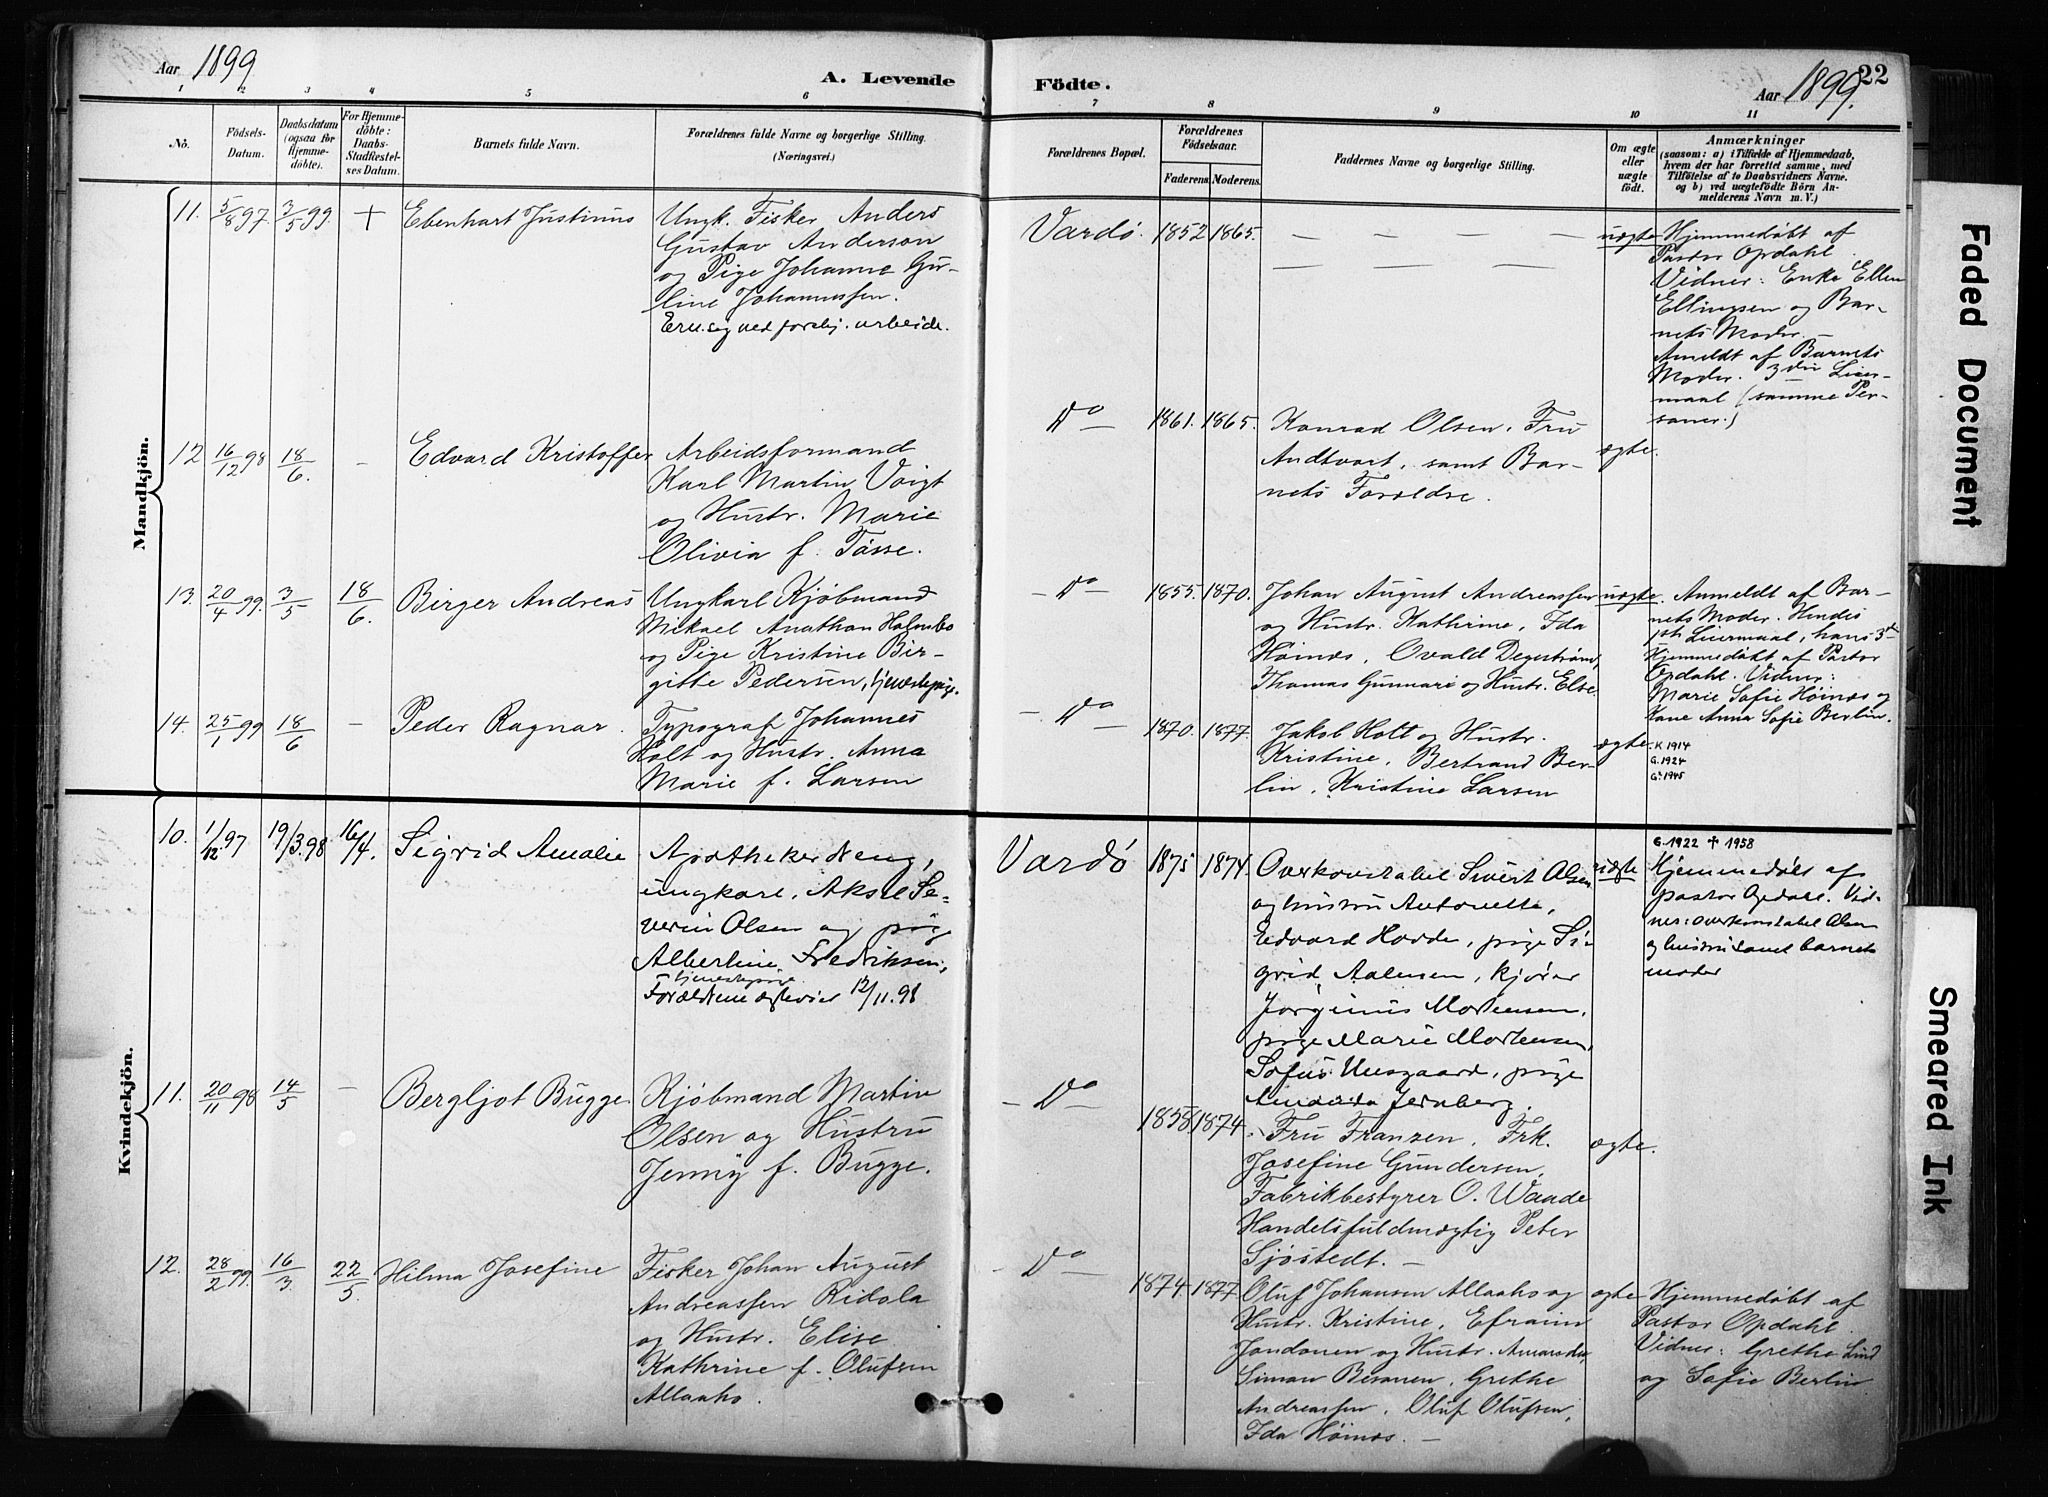 Aar 1899
A. Levende
Födte.
Aar 1899.
22
1 2 3 4 5 6 7 8 9 10 11
Nô.
Födsels-
Datum.
Daabsdatum
(ogsaa for
Hjemme-
döbte).
For Hjemme-
döbte:
Daabs-
Stadfæstel-
ses Datum.
Barnets fulde Navn.
Forældrenes fulde Navne og borgerlige Stilling.
(Næringsvei.)
Forældrenes Bopæl.
Forældrenes
Födselsaar.
Faderens. Moderens.
Faddernes Navne og borgerlige Stilling.
Om ægte
eller
uægte
födt.
Anmærkninger
(saasom: a) i Tilfælde af Hjemmedaab,
hvem der har forrettet samme, med
Tilföielse af to Daabsvidners Navne.
og b) ved uægtefödte Börn An-
melderens Navn m. V.)
Mandkjön.
11. 5/8 97. 3/5 99. + Ebenhart Justinus
Ungk. Fisker Anders
Gustav Anderson
og Pige Johanne Gu-
line Johannessen.
Ern. sig ved forskj. arbeide.
Vardø. 1852 1865. — — — —
— — — —
uægte
Hjemmedøbt af
Pastor Opdahl
Vidner: Enke Ellen
Ellingsen og Bar-
nets Moder.—
Anmeldt af Barnets
Moder. 3die Leier-
maal (samme Per-
soner.)
12 16/12 98 18/6. – Edvard Kristoffer
Arbeidsformand
Karl Martin Voigt
og Hustr. Marie
Olivia f. Tøsse.
Do 1861. 1865.
Konrad Olsen, Fru
Andtvort, samt Bar-
nets Forældre.
ægte.
13. 20/4 99. 3/5 18/6. Birger Andreas
Ungkarl Kjøbmand
Mikael Anathon Holmbo
og Pige Kristine Bir-
gitte Pedersen, tjenestepige.
– Do – 1855. 1870.
Johan August Andreassen
og Hustr. Kathrine, Ida
Høinæs, Ovald Degerstrøm,
Thomas Gunnari og Hustr. Else
uægte.
Anmeldt af Bar-
nets Moder. Hendes
1ste Leiermaal, hans 3die
Hjemmedøbt af Pastor
Opdahl. Vidner:
Marie Sofie Høinæs og
Kone Anna Sofie Berlin.
14. 25/1 99 18/6 – Peder Ragnar.
Typograf Johannes
Holt og Hustr. Anna
Marie f. Larsen
– Do – 1870. 1877.
Jakob Holt og Hustr.
Kristine, Bertrand Ber-
lin, Kristine Larsen
ægte.
K 1914
G. 1924
G2 1945
Kvindekjön.
10. 1/12 97 19/3 98 16/4. Sigrid Amalie
Apotheker
ungkarl, Aksel Se-
verin Olsen og pige
Albertine Fredriksen,
tjenestepige.
Forældrene ægteviet 12/11.98
Vardø 1875 1874.
Overkonstabel Sivert Olsen
og hustru Antonette,
Edvard Hovde, pige Si-
grid Aalensen, kjører
Jørginus Mortensen,
pige Marie Mortensen,
Sofus Uusgaard, pige
Amanda Jernberg.
uægte
G. 1922 ✝ 1958
Hjemmedøbt af
pastor Opdahl. Vid-
ner: overkonstabel Olsen
og hustru samt barnets
moder
11. 20/11 98 14/5 – Bergljot Bugge
Kjøbmand Martin
Olsen og Hustru
Jenny f. Bugge.
– Do – 1858. 1874.
Fru Franzen, Frk.
Josefine Gundersen,
Fabrikbestyrer O. Waade
Handelsfuldmægtig Peter
Sjøstedt. –
ægte.
12. 28/2 99. 16/3 22/5. Hilma Josefine
Fisker Johan August
Andreassen Ridola
og Hustr. Elise
Kathrine f. Olufsen
Allaaho.
– Do – 1874. 1877.
Oluf Johansen Allaaho og
Hustr. Kristine, Efraim
Jondonen og Hustr. Amanda,
Simon Besonen, Grethe
Andreassen, Oluf Olufsen,
Ida Høinæs. –
ægte
Hjemmedøbt af
Pastor Opdahl.
Vidner: Grethe Lind
og Sofie Berlin
Faded Document
Smeared Ink